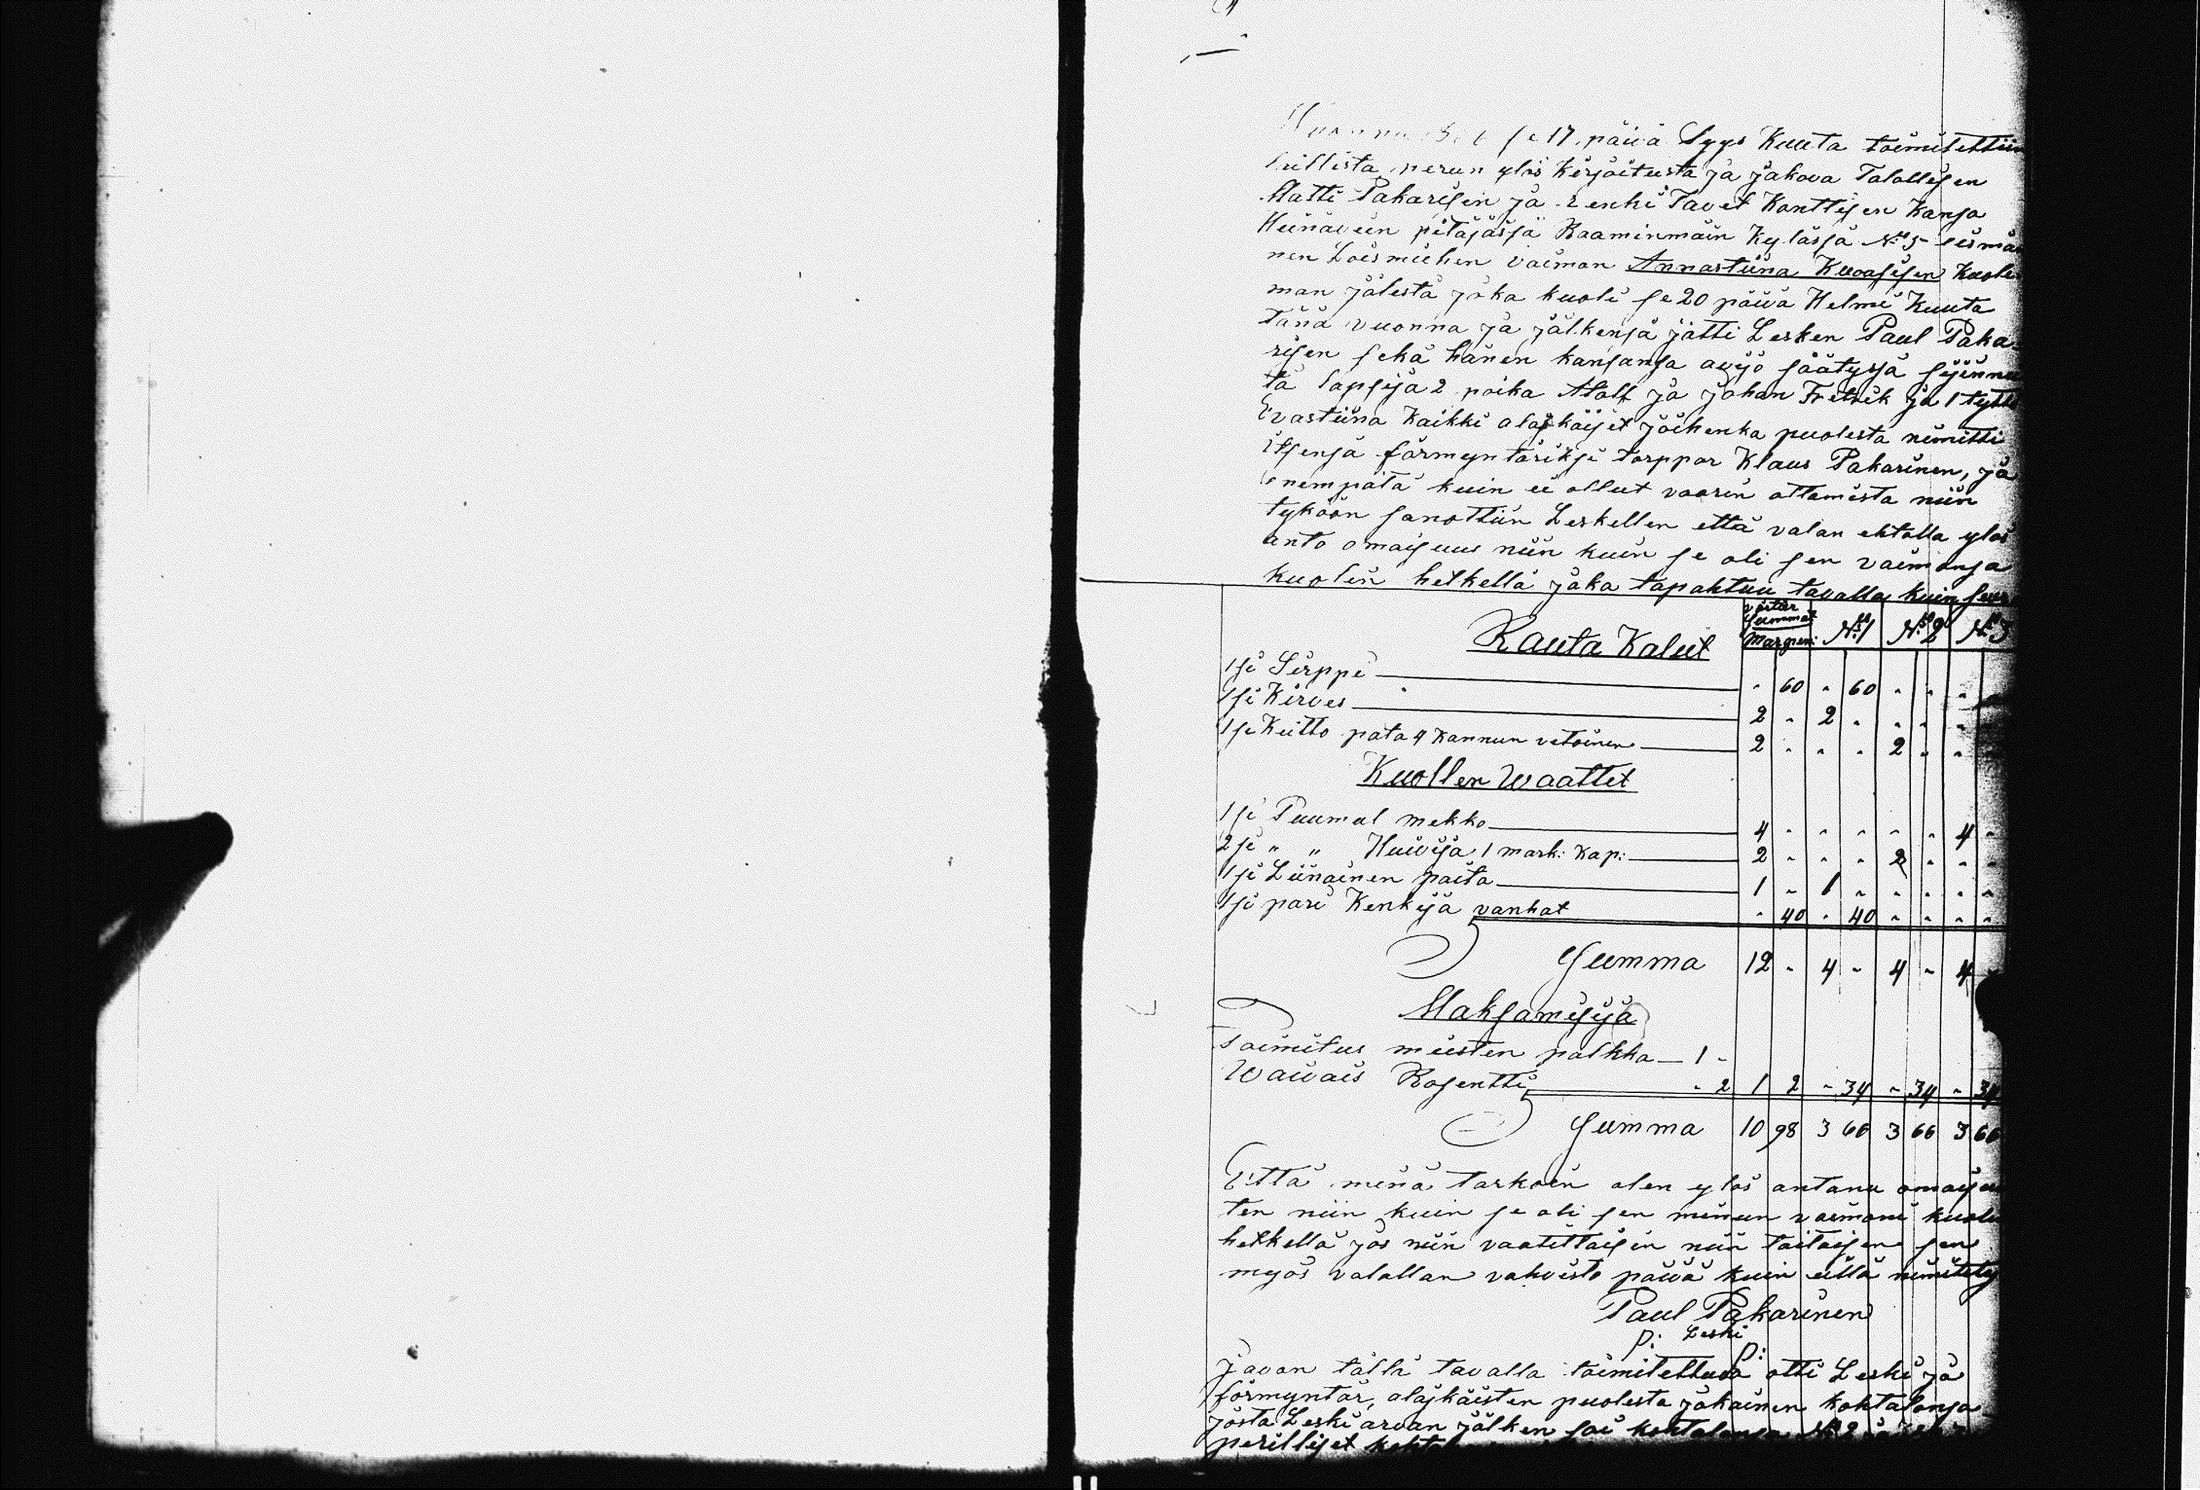 se 17. päivä Syys Kuuta toimitettiin
perun ylös Kirjoitusta ja jakova Talollisen
Matti Pakarisen ja renki Tavet Konttisen Kansa
Heinäveen pitäjäsjä Raaminmäin Kyläsjä N:o 5
nen Loismiehen vaimon Annastiina Kuosisen Kuole-
man jälestä joka kuoli se 20 päivä Helmi Kuuta
tänä vuonna ja jälkensä jätti Lesken Paul Paka-
risen sekä hänen kansansa avijo säätysjä syinny
tä lapsija 2 poika Atolf ja Johan Fretrik ja 1 tyttö
Evastiina Kaikki alajkäiset joihenka puolesta nimitti
itsensä förmyntäriksi torppar Klaus Pakarinen, ja
enempätä kuin ei ollut vaarin ottamista niin
tyköön sanottiin Leskellen että valan ehtolla ylös
anto omaisuus niin kuin se oli sen vaimonsa
kuolin hetkellä joka tapahtuu tavalla kuin seur
Rauta Kalut Summat N:o 1 N:o 2 N:o 3
1 si Sirppi " 60 " 60 " " "
1 si Kirves 2 " 2 " " " "
1 si Keitto pata 4 Kannun vetoinen 2 " " " 2 " "
Kuollen Waattet
1 si Puumul mekko 4 " " " " " 4 "
2 si " " Huivija 1 mark: Kap: 2 " " " 2 " " "
1 si Liinainen paita 1 " 1 " " " " "
1 si pari Kenkijä vanhat " 40 " 40 " " " "
Summa 12 " 4 " 4 " 4
Maksamisija
Toimitus miesten palkka 1 "
Waivais Rosentti " 2 1 2 " 34 " 34 " 34
Summa 10 98 3 66 3 66 3 66
Että minä tarkoin olen ylös antanu omaisu
ten niin kuin se oli sen minun vaimoni kuolin
hetkellä jos niin vaatittaisin niin taitaisin sen
myös valallan vahvista päivä kuin eillä nimitety
Paul Pakarinen
p: Leski p:
Javon tällä tavalla toimitettuva otti Leski ja
förmyntär, alajkäisten puolesta jokainen kohtalonsa
josta Leski arvan jälken sai kohtalonsa N:o 2
perilliset